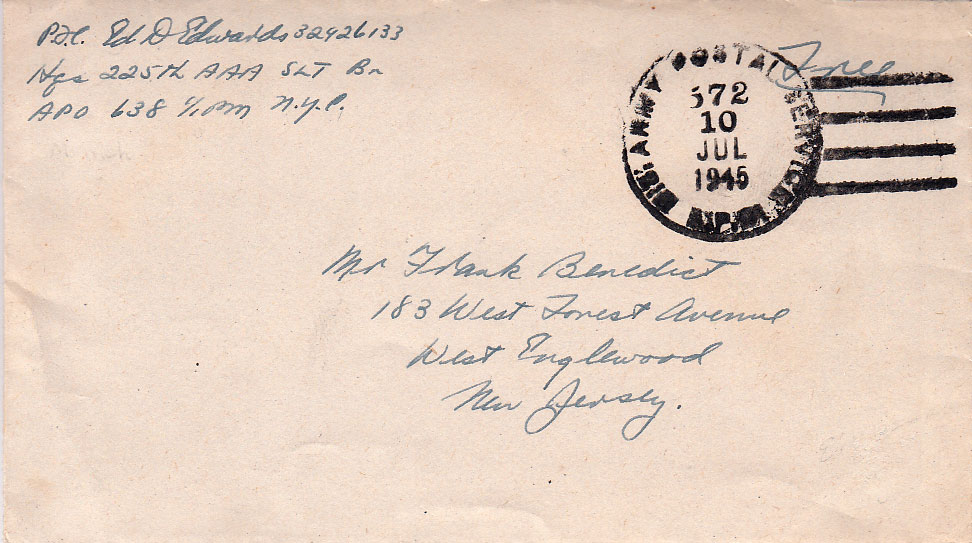 Pfc. Ed D Edwards 32926133
Hqs 225th AAA SLT Bn
APO 638 c/o pm N.Y.P.
Free
ARMY POSTAL SERVICE
572
10
JUL
1945
Mr Frank Benedict
183 West Forest Avenue
West Englewood
New Jersey.